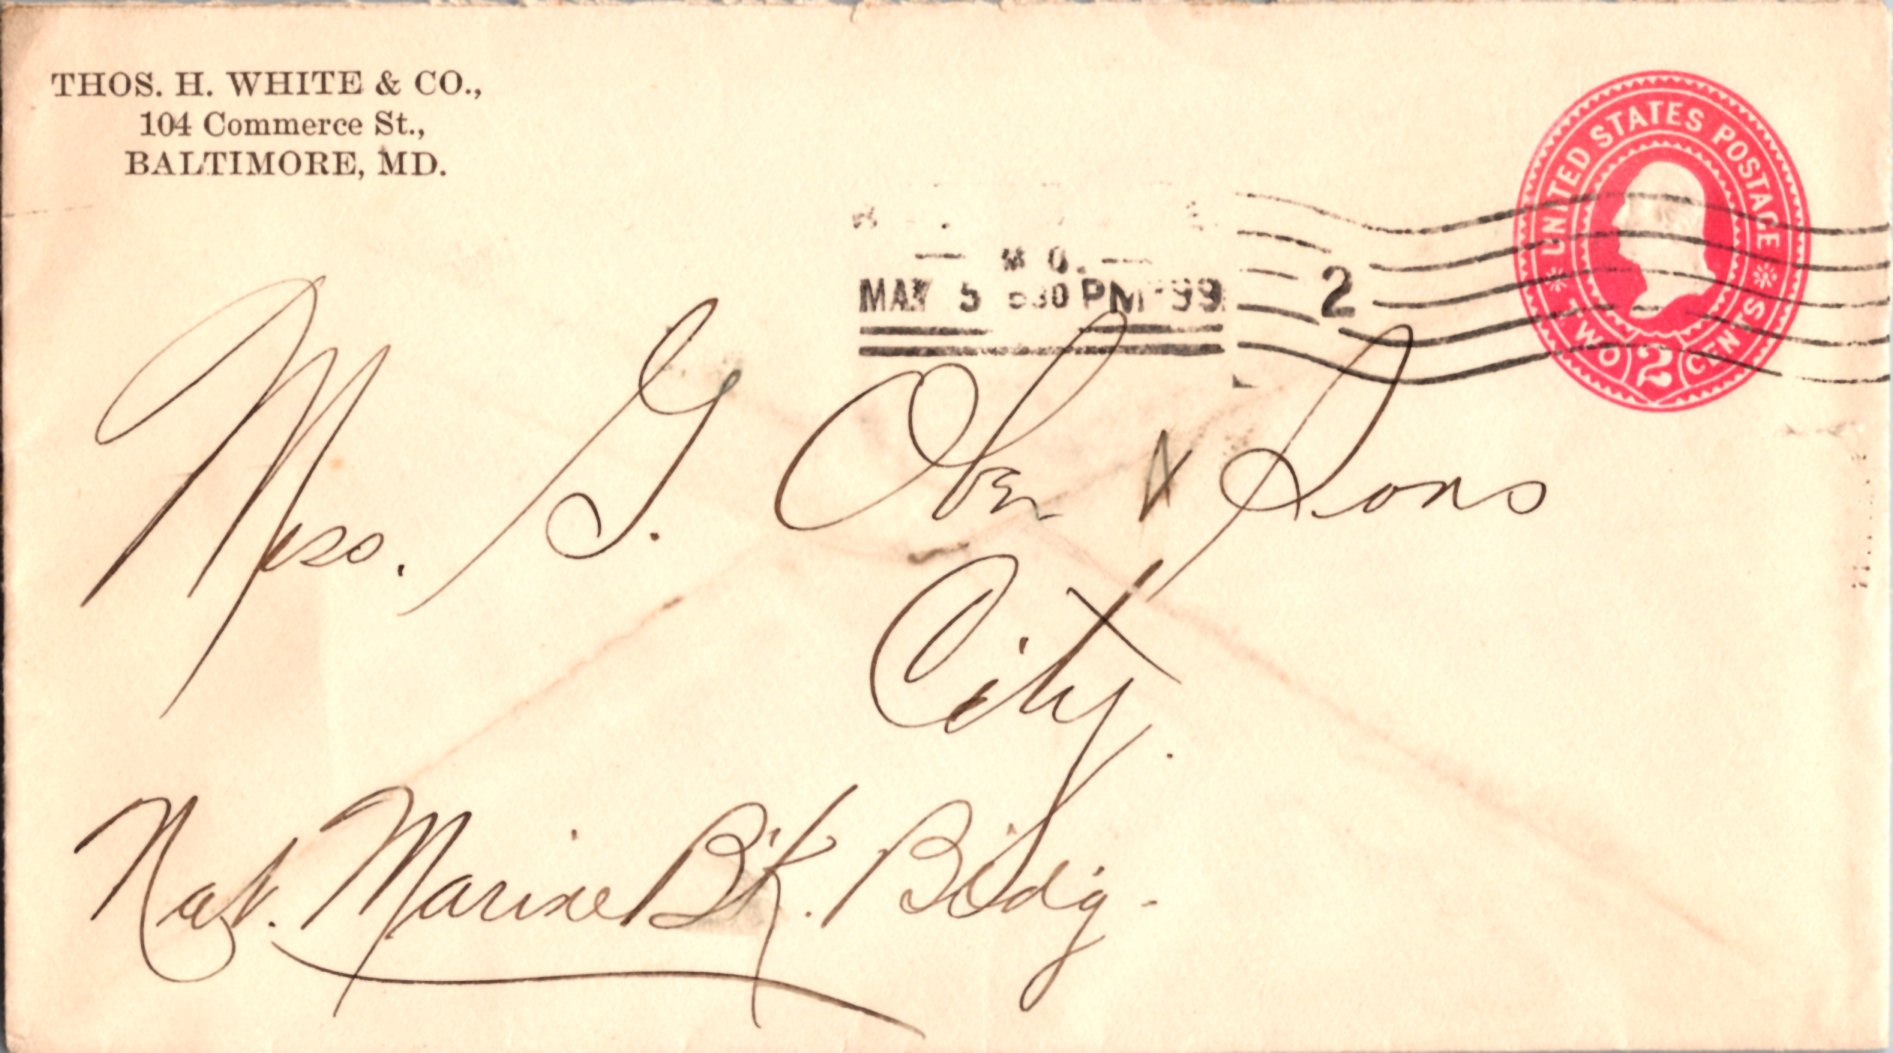 THOS. H. WHITE & CO.,
104 Commerce St.,
BALTIMORE, MD.
UNITED STATES POSTAGE
TWO 2 CENTS
MAY 5 PM 99
2
Mess. G. Ober & Sons
City.
Nat. Marine Bk. Bldg.